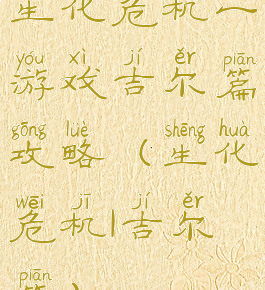 生化危机一
yóu xì jí ěr piān
游戏吉尔篇
gōng lüè shēng huà
攻略（生化
wēi jī jí ěr
危机|吉尔
piān
篇）